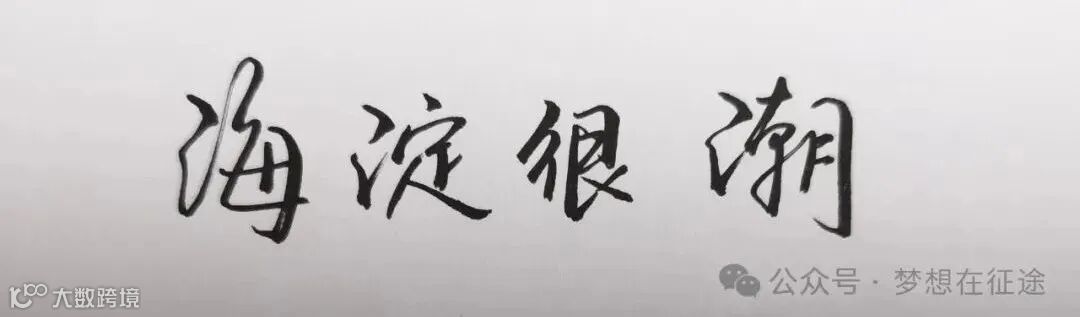 海淀很潮
公众号·梦想在征途
100 大数跨境